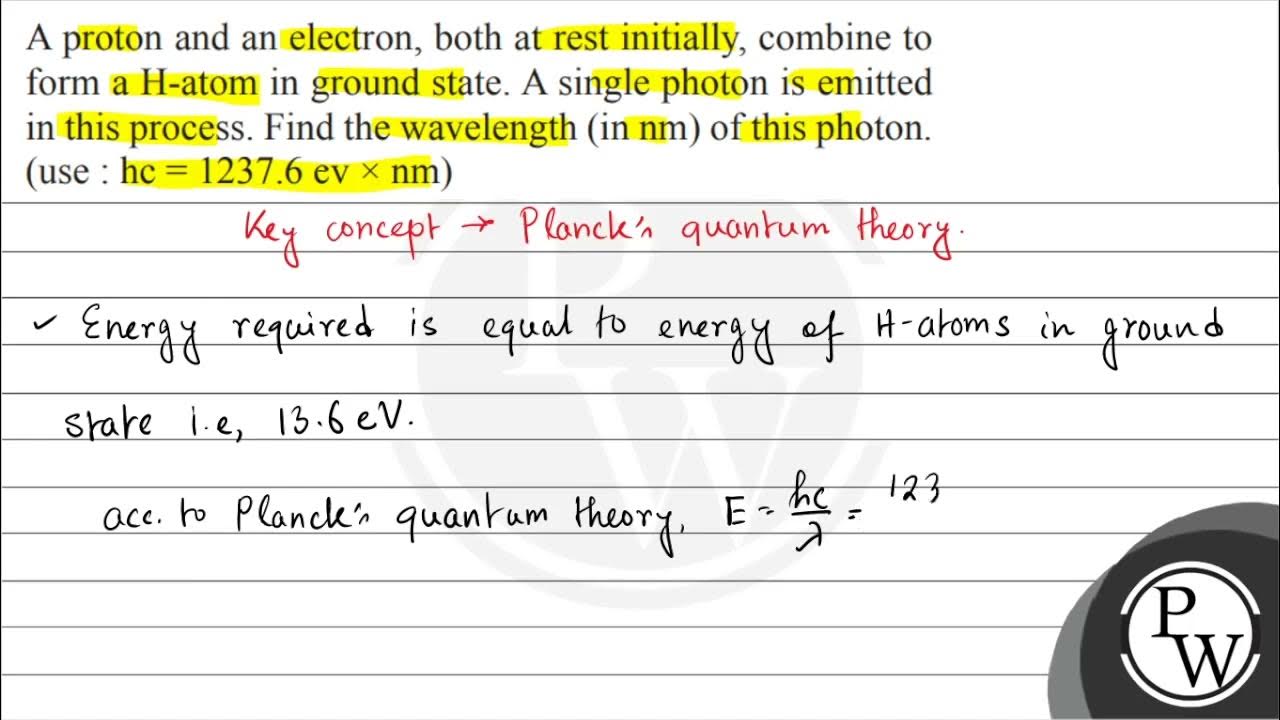 A proton and an electron, both at rest initially, combine to
form a H-atom in ground state. A single photon is emitted
in this process. Find the wavelength (in nm) of this photon.
(use : hc = 1237.6 ev × nm)
Key concept → Planck's quantum theory.
✓ Energy required is equal to energy of H-atoms in ground
state i.e, 13.6 eV.
acc. to Planck's quantum theory, E = hc/λ = 123
PW
PW